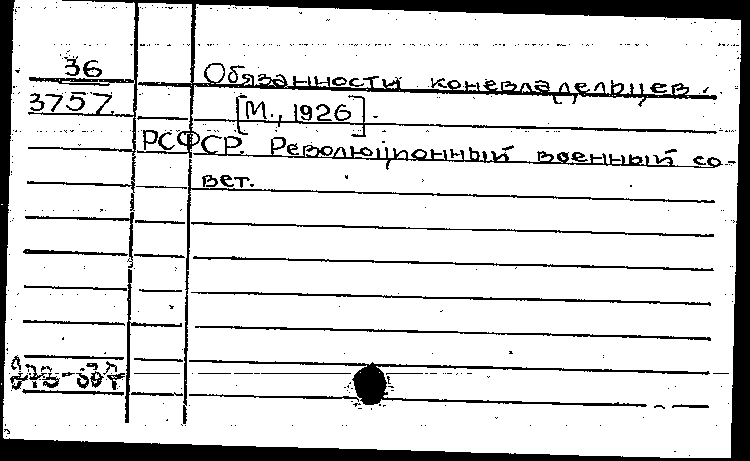 36
3757.
Обязанности коневладельцев.
[М., 1926].
РСФСР. Революционный военный со-
вет.